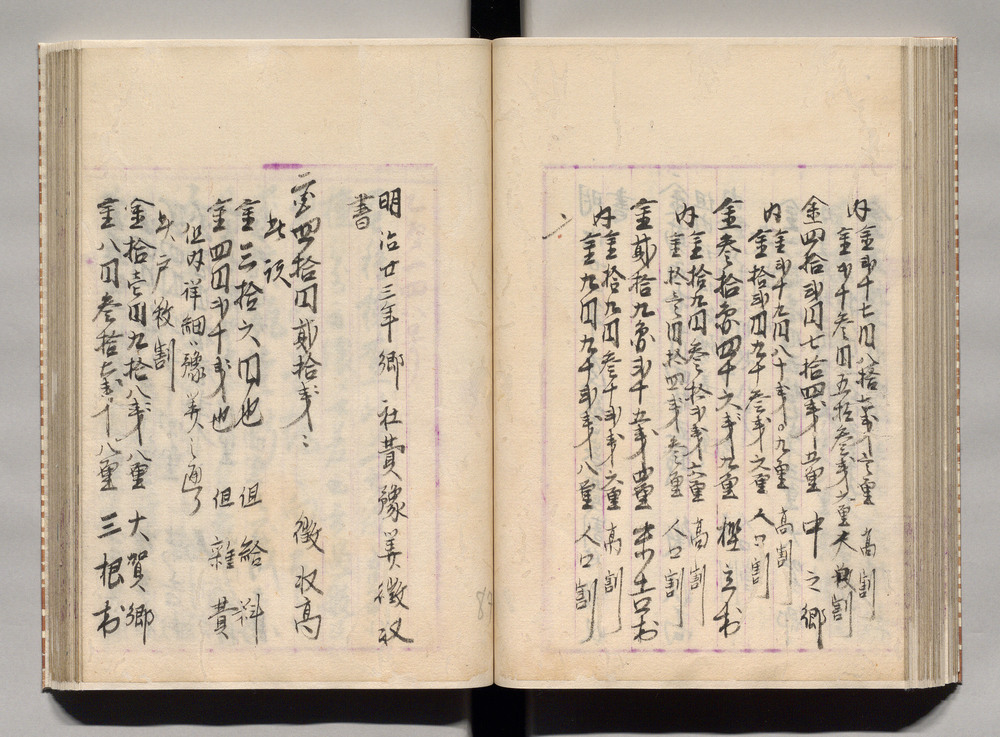 内金弐十七円八拾七銭壱厘 高割
金弐十参円五拾参銭六厘 夫銭割
金四拾弐円七拾四銭五厘 中之郷
内金弐十九円八十弐銭九厘 高割
金拾弐円九十壱銭六厘 人口割
金参拾壱円四十六銭九厘 樫立村
内金拾九円参拾弐銭六厘 高割
金拾弐円拾四銭参厘 人口割
金弐拾九円弐十五銭四厘 末吉村
内金拾九円参十弐銭六厘 高割
金九円九十弐銭八厘 人口割
明治廿三年郷社費豫算徴収
書
一金四拾円弐拾銭 徴収高
此訳
金三拾六円也 但給料
金四円弐十銭也 但雑費
但内詳細ハ豫算之通り
此戸数割
金拾壱円九拾八銭八厘 大賀郷
金八円参拾七銭八厘 三根村